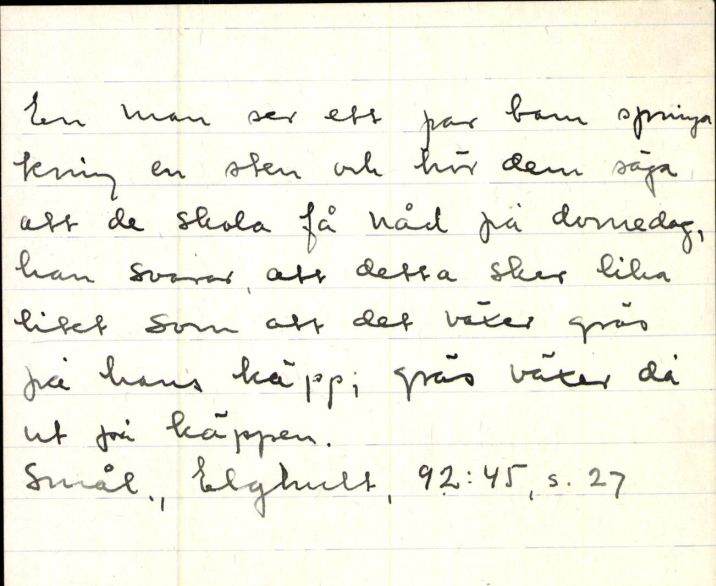 En man ser ett par barn springa
kring en sten och hör dem säga
att de skola få nåd på domedag,
han svarar att detta sker lika
litet som att det växer gräs
på hans käpp; gräs växer då
ut på käppen.
Smål., Elghult, 92:45, s. 27